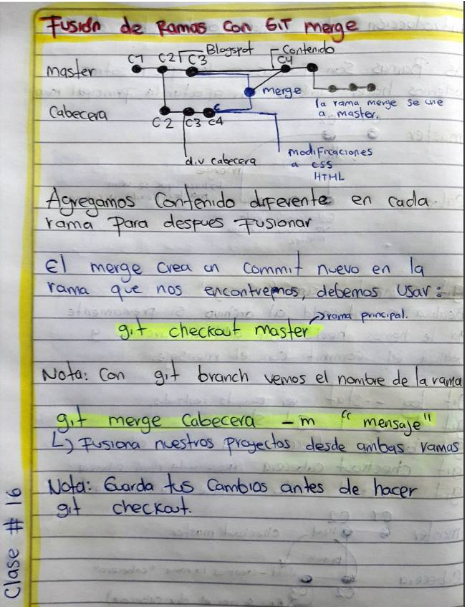 Fusión de Ramas con GIT merge
Blogspot
Contenido
C1 C2 C3 C4
Master
merge
la rama merge se une
a master.
Cabecera
C2 C3 C4
div cabecera
modificaciones
a CSS
HTML
Agregamos Contenido diferente en cada
rama para despues Fusionar
El merge crea un commit nuevo en la
rama que nos encontremos, debemos usar:
git checkout master
rama principal.
Nota: Con git branch vemos el nombre de la rama
git merge Cabecera -m "mensaje"
Fusiona nuestros proyectos desde ambas ramas
Nota: Guarda tus Cambios antes de hacer
git checkout.
Clase # 16